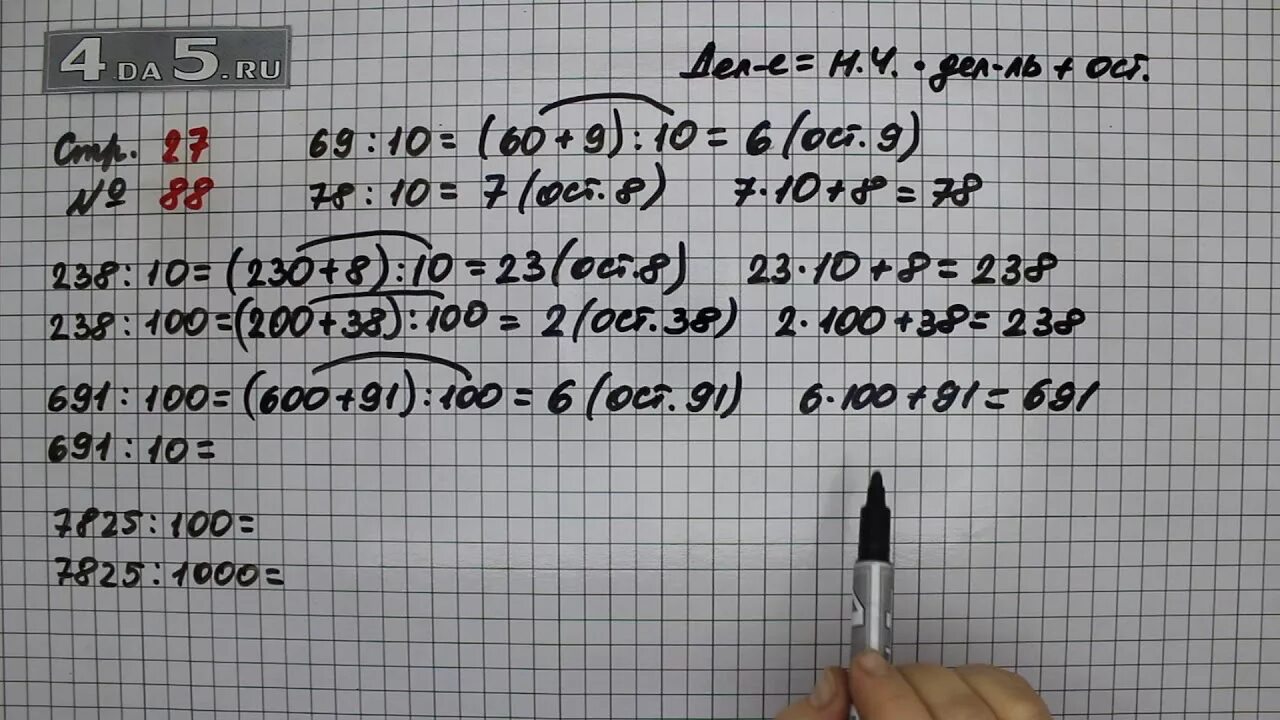 4DA5.RU
Дел-е = Н.Ч. · дел-ль + ост.
Стр. 27
69 : 10 = (60 + 9) : 10 = 6 (ост. 9)
№ 88
78 : 10 = 7 (ост. 8) 7 · 10 + 8 = 78
238 : 10 = (230 + 8) : 10 = 23 (ост. 8) 23 · 10 + 8 = 238
238 : 100 = (200 + 38) : 100 = 2 (ост. 38) 2 · 100 + 38 = 238
691 : 100 = (600 + 91) : 100 = 6 (ост. 91) 6 · 100 + 91 = 691
691 : 10 =
7825 : 100 =
7825 : 1000 =